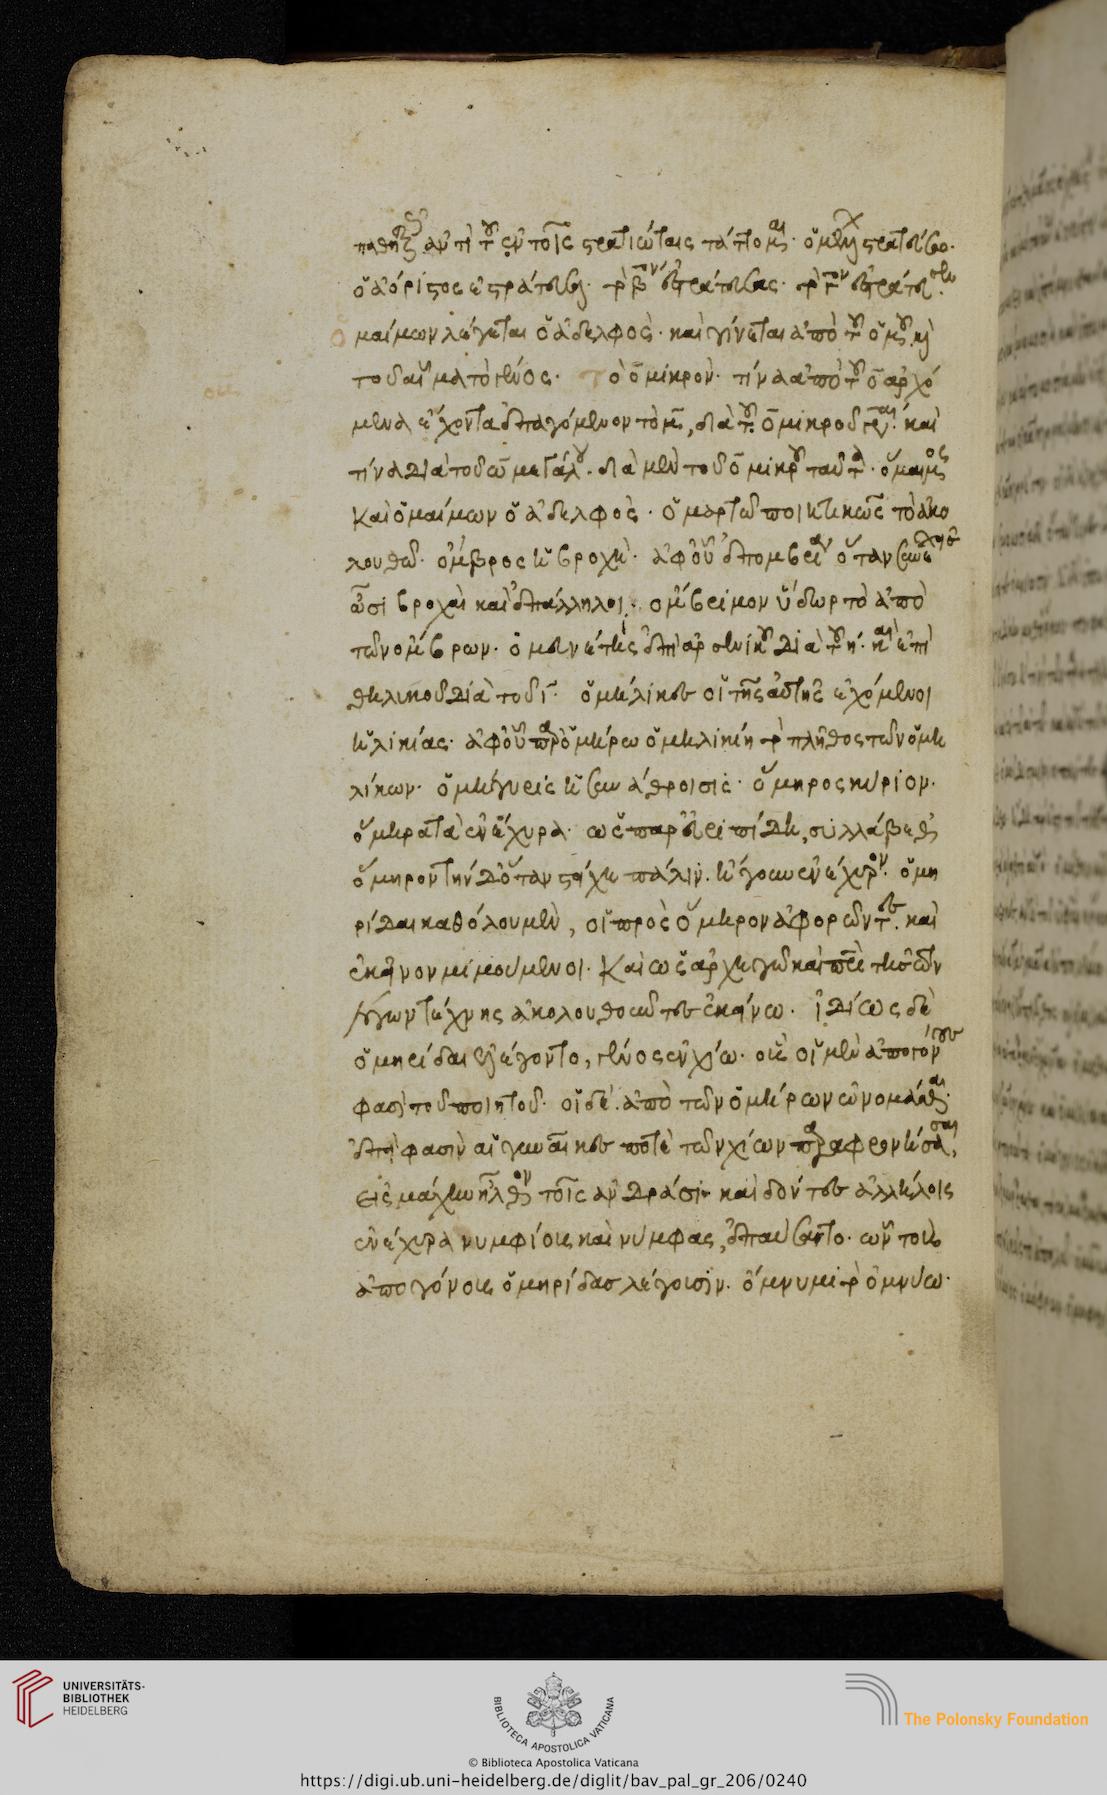 ἀντὶ τοῦ ἐν τοῖς στρατιώταις τάττομαι· ὁ μέλλων στρατεύσω·
ὁ ἀόριστος ἐστράτευσα· τὸ βον ἐστράτευσας· τὸ γον ἐστράτευσεν·
μαίμων λέγεται ὁ ἀδελφός· καὶ γίνεται ἀπὸ τοῦ ὁμοῦ καὶ
τοῦ αἷμα τὸ γένος· τὸ ο μικρόν· τινὰ ἀπὸ τοῦ ο ἀρχό
μενα ἔχοντα ἐπαγόμενον τὸ μ, διὰ τοῦ ο μικροῦ καὶ
τινὰ διὰ τοῦ ω μεγάλου· διὰ μὲν τοῦ ο μικροῦ ταῦτα· ὅμαιμος
καὶ ὁμαίμων ὁ ἀδελφός· ὁμαρτῶ ποιητικῶς τὸ ἀκο
λουθῶ· ὄμβρος ἡ βροχή· ἀφ' οὗ ἐπομβρία ὅταν συνεχεῖς
ὦσι βροχαὶ καὶ ἐπάλληλοι· ὄμβριμον ὕδωρ τὸ ἀπὸ
τῶν ὄμβρων· ἐπὶ ἀρσενικοῦ διὰ τοῦ η· καὶ ἐπὶ
θηλυκοῦ διὰ τοῦ ι· ὁμήλικες οἱ τῆς αὐτῆς ἐχόμενοι
ἡλικίας· ἀφ' οὗ παρ' ὁμήρω ὁμηλικίη τὸ πλῆθος τῶν ὁμη
λίκων· ὁμήγυρις ἡ συνάθροισις· ὅμηρος κύριον·
ὅμηρα τὰ ἐνέχυρα· ὡς παρ' εὐριπίδη, συλλάβεθ'
ὅμηρον τήνδ' ὅπως στείχη πάλιν· ἤγουν ἐνέχυρον· ὁμη
ρίδαι καθόλου μὲν, οἱ πρὸς ὅμηρον ἀφορῶντες· καὶ
ἐκεῖνον μιμούμενοι· καὶ ὡς ἀρχηγῶ καὶ περὶ τῆς τῶν
λόγων τέχνης ἀκολουθοῦντες ἐκείνω· ἰδίως δὲ
ὁμηρίδαι ἐλέγοντο, γένος ἐν χίω· οὓς οἱ μὲν ἀπογόνους
φασὶ τοῦ ποιητοῦ· οἱ δὲ ἀπὸ τῶν ὁμήρων ὠνομάσθαι·
ἐπεί φασιν αἱ γυναῖκες ποτὲ τῶν χίων παραφρονήσασαι,
εἰς μάχην ἦλθον τοῖς ἀνδράσι· καὶ δόντες ἀλλήλοις
ἐνέχυρα νυμφίους καὶ νύμφας, ἐπαύσαντο· ὧν τοὺς
ἀπογόνους ὁμηρίδας λέγουσιν· ὄμνυμι τὸ ὀμνύω·
UNIVERSITÄTS-
BIBLIOTHEK
HEIDELBERG
BIBLIOTECA APOSTOLICA VATICANA
The Polonsky Foundation
© Biblioteca Apostolica Vaticana
https://digi.ub.uni-heidelberg.de/diglit/bav_pal_gr_206/0240